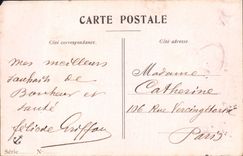 CARTE POSTALE
Côté correspondance.
Côté adresse.
Mes meilleurs
souhaits de
Bonheur et
santé
Madame
Catherine
116 Rue Vercingétorix
Paris
Série N